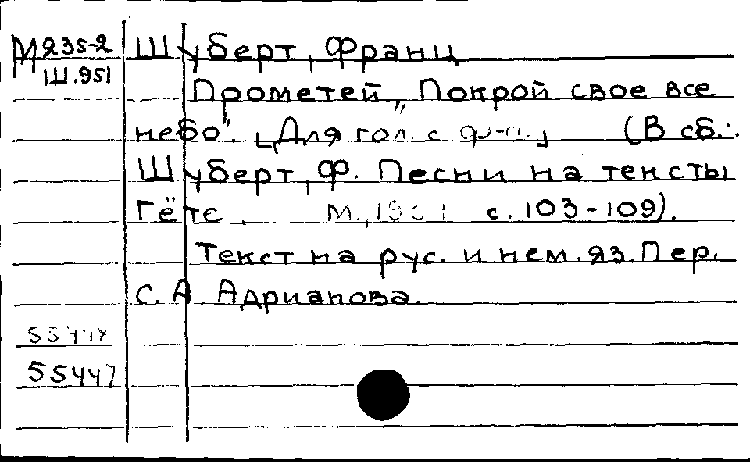 М235-2 Шуберт, Франц
Ш.951
Прометей „Покрой свое все
небо". [Для гол. с ф-п.] (В сб.:
Шуберт, Ф. Песни на тексты
Гёте. М., с. 103-109).
Текст на рус. и нем. яз. Пер.
С. А. Адрианова.
55447